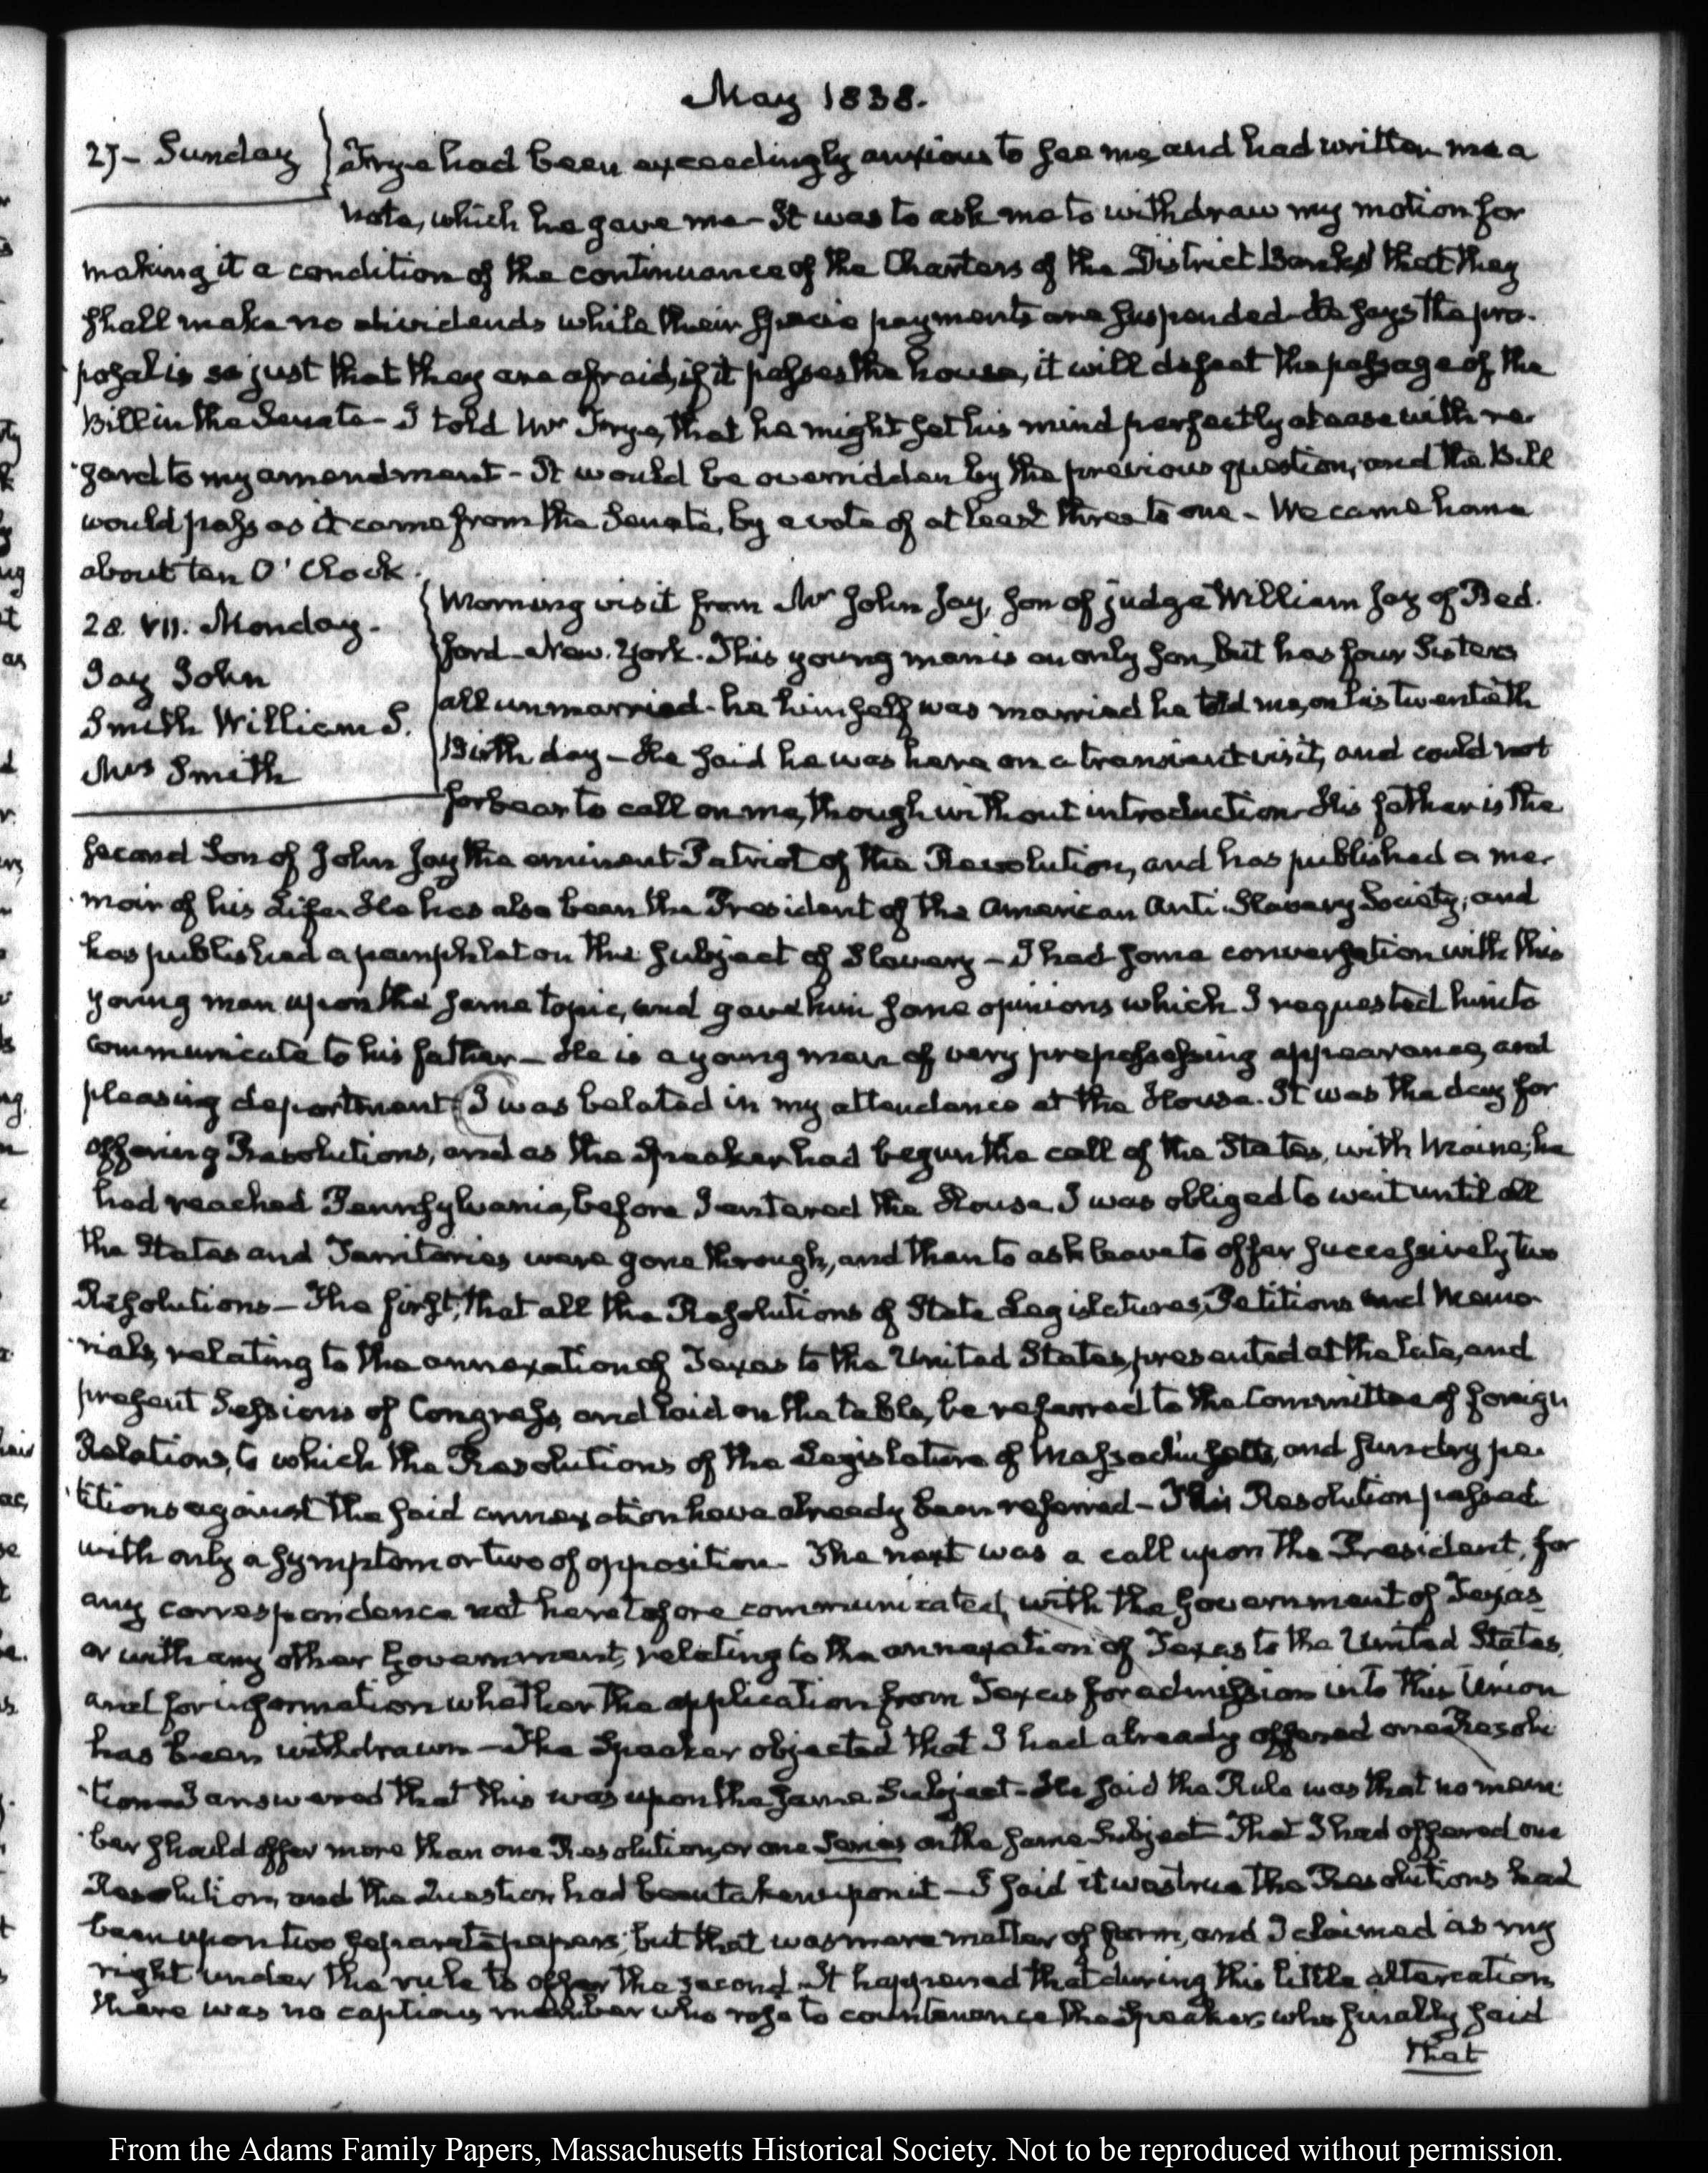 May 1838.
27- Sunday
Frye had been exceedingly anxious to see me, and had written me a
note, which he gave me - It was to ask me to withdraw my motion for
making it a condition of the continuance of the Charters of the District Banks, that they
shall make no dividends while their specie payments are suspended - He says the pro-
posal is so just that they are afraid, if it passes the house, it will defeat the passage of the
Bill in the Senate - I told Mr Frye, that he might set his mind perfectly at ease with re-
gard to my amendment - It would be overridden by the previous question, and the Bill
would pass as it came from the Senate, by a vote of at least three to one - We came home
about ten O'Clock.
28. VII. Monday.
Jay John
Smith William S.
Mrs Smith
Morning visit from Mr John Jay, Son of judge William Jay of Bed-
ford - New-York. This young man is an only Son, but has four Sisters
all unmarried - he himself was married he told me, on his twentieth
Birth day - He said he was here on a transient visit, and could not
forbear to call on me, though without introduction - His father is the
second Son of John Jay the eminent Patriot of the Revolution, and has published a me-
moir of his Life. He has also been the President of the American Anti-Slavery Society, and
has published a pamphlet on the subject of Slavery - I had some conversation with this
young man upon the same topic, and gave him some opinions which I requested him to
communicate to his father - He is a young man of very prepossessing appearance, and
pleasing deportment. (I was belated in my attendance at the House. It was the day for
offering Resolutions, and as the Speaker had begun the call of the States, with Maine, he
had reached Pennsylvania, before I entered the House. I was obliged to wait until all
the States and Territories were gone through, and then to ask leave to offer successively two
Resolutions - The first, that all the Resolutions of State Legislatures, Petitions and Memo-
rials, relating to the annexation of Texas to the United States, presented at the late, and
present Sessions of Congress, and laid on the table, be referred to the Committee of foreign
Relations, to which the Resolutions of the Legislature of Massachusetts, and sundry pe-
titions against the said annexation have already been referred - This Resolution passed
with only a symptom or two of opposition - The next was a call upon the President, for
any correspondence not heretofore communicated, with the Government of Texas
or with any other Government, relating to the annexation of Texas to the United States,
and for information whether the application from Texas for admission into this Union
has been withdrawn - The Speaker objected that I had already offered one Resolu-
tion - I answered that this was upon the same Subject - He said the Rule was that no mem-
ber should offer more than one Resolution, or one Series on the same Subject - That I had offered one
Resolution, and the Question had been taken upon it - I said it was true the Resolutions had
been upon two separate papers; but that was mere matter of form, and I claimed as my
right under the rule to offer the second. It happened that during this little altercation
there was no captious member who rose to countenance the Speaker, who finally said
that
From the Adams Family Papers, Massachusetts Historical Society. Not to be reproduced without permission.